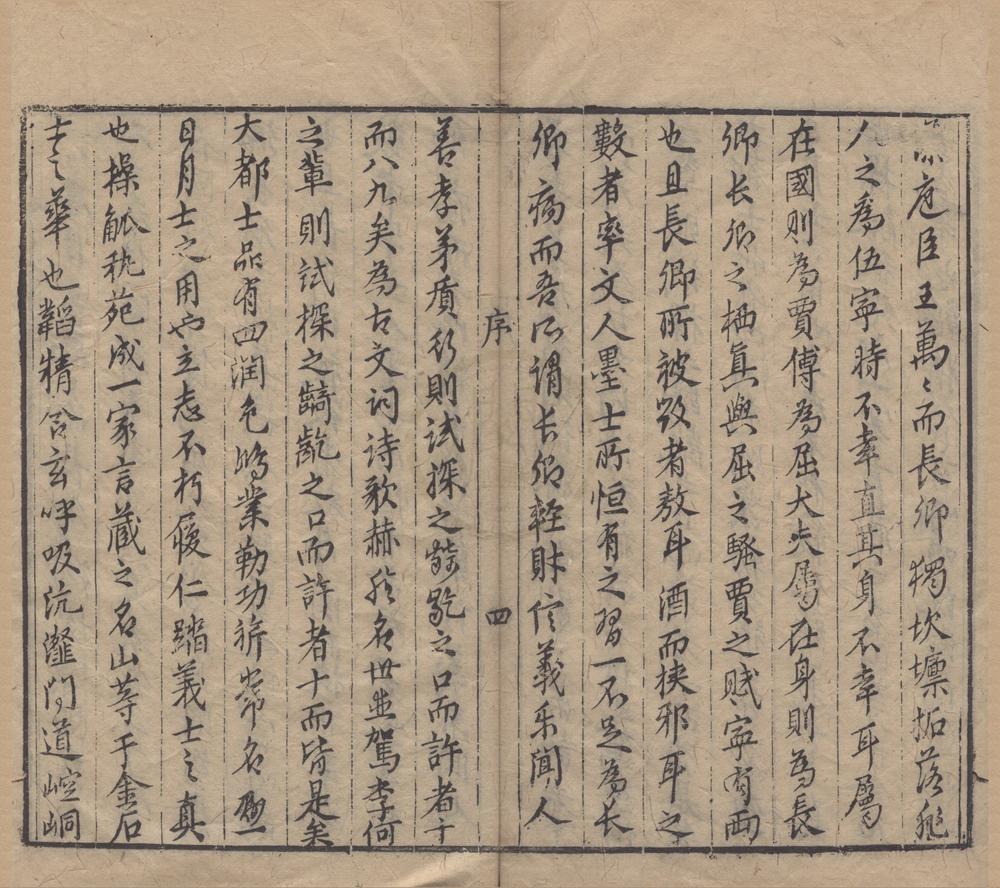 庖臣王萬〻而長卿獨坎壈拓落幾
人之為伍寧時不幸直其身不幸耳屬
在國則為賈傅為屈大夫屬在身則為長
卿長卿之栖真與屈之騷賈之賦寧有兩
也且長卿所被毀者敖耳酒而狹邪耳之
數者率文人墨士所恒有之習一不足為長
卿病而吾所謂長卿輕財信義樂聞人
序
四
善孝弟質行則試探之齮齕之口而許者十
而八九矣為古文詞詩歌赫於名世並駕李何
之輩則試探之齮齕之口而許者十而皆是矣
大都士品有四潤色鴻業勒功旂常名懸
日月士之用也立志不朽履仁蹈義士之真
也操觚秇苑成一家言蔵之名山等于金石
士之華也韜精含玄呼吸沆瀣問道崆峒